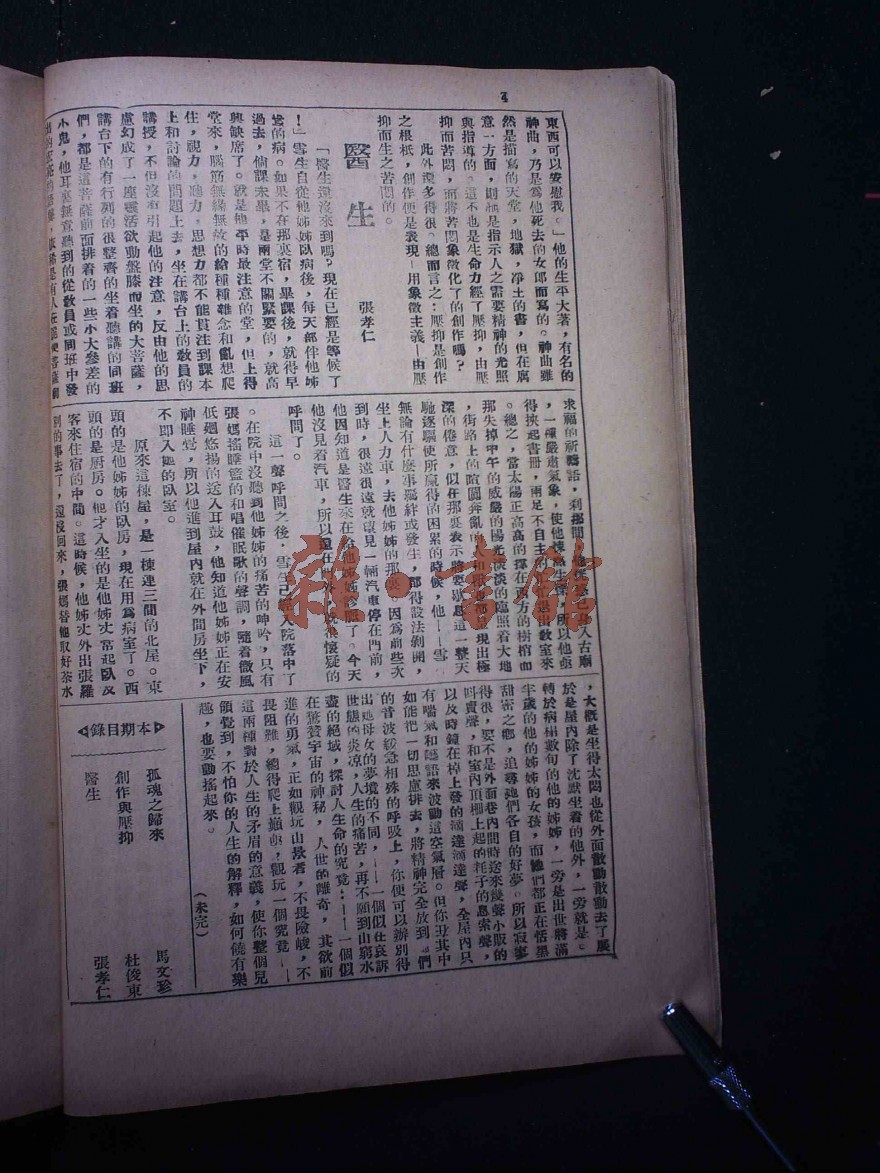 4
東西可以安慰我。」他的生平大著,有名的
神曲,乃是爲他死去的女郎而寫的。神曲雖
然是描寫的天堂,地獄,凈土的書,但在寓
意一方面,則他是指示人之需要精神的光照
與指導的。這不也是生命力經了壓抑,由壓
抑而苦悶,而將苦悶象徵化了的創作嗎?
此外還多得很。總而言之:壓抑是創作
之根柢,創作便是表現—用象徵主義—由壓
抑而生之苦悶的。
醫生
張孝仁
「醫生還沒來到嗎?現在已經是等候了
!」雪生自從他姊姊臥病後,每天都伴他姊
姊的病。如果不在那裏宿,畢課後,就得早
過去,倘課未畢,是兩堂不關緊要的,就高
興缺席了。就是他平時最注意的堂,但上得
堂來,腦筋無緣無故的給種種雜念和亂想爬
住,視力,聽力。思想力都不能貫注到課本
上和討論的問題上去,坐在講台上的教員的
講授,不但沒有引起他的注意,反由他的思
慮幻成了一座靈活欲動盤膝而坐的大菩薩,
講台下的有行列的很整齊的坐着聽講的同班
們,都是這菩薩前面排着的一些小大參差的
小鬼,他耳裏無意聽到的從教員或同班中發
求福的祈禱語,刹那間他恍
,一種嚴肅氣象,使他悚然生
得挾起書冊,兩足不自主的
。總之,當太陽正高高的擇在西方的樹梢而
那失掉中午的威嚴的陽光淡淡的臨照着大地
,街路上的喧鬧奔亂的
呈現出極
深的倦意,似在那裏表示將要歇息這一整天
馳逐驅使所贏得的困累的時候,他——雪
無論有什麼事羈絆或發生,都得設法剝開,
坐上人力車,去他姊姊的那裏。因爲前些次
到時,很遠很遠就望見一輛汽車停在門前,
他因知道是醫生來在給他姊姊診
了。今天
他沒見着汽車,所以還在
懷疑的
呼問了。
這一聲呼問之後,雪生已經入院落中了
。在院中沒聽到他姊姊的痛苦的呻吟,只有
張媽搖睡籃的和唱催眠歌的聲調,隨着微風
低廻悠揚的送入耳鼓,他知道他姊姊正在安
神睡覺,所以他進到屋內就在外間房坐下,
不即入她的臥室。
原來這棟屋,是一棟連三間的北屋。東
頭的是他姊姊的臥房,現在用爲病室了。西
頭的是厨房。他才入坐的是他姊丈常起臥及
客來住宿的中間。這時候,他姊丈外出張羅
別的事去了,還沒回來,張媽替他取好茶水
,大概是坐得太悶也從外面散動散動去了罷
於是屋內除了沈默坐着的他外,一旁就是。
轉於病榻數旬的他的姊姊,一旁是出世將滿
半歲的他的姊姊的女孩,而她們都正在恬黑
甜密之鄉,追尋她們各自的好夢。所以寂寥
得很,要不是外面巷內間時送來幾聲小販的
叫賣聲,和室內頂棚上起的耗子的悉索聲,
以及時鐘在棹上發的滴達滴達聲,全屋內只
有喘氣和囈語來波動這空氣層。但你丑其中
如能把一切思慮排去,將精神完全放到。們
的音波緩急相殊的呼吸上,你便可以辦別得
出她母女的夢境的不同,——一個似在哀訴
世態的炎凉,人生的痛苦,再不願到山窮水
盡的絕域,探討人生命的究竟:——一個似
在驚贊宇宙的神秘,人世的離奇,其欲前
進的勇氣,正如觀玩山景者,不畏險峻,不
畏阻難,總得爬上巔頂,觀玩一個究竟——
這兩種對於人生的矛盾的意義,使你整個兒
領覺到,不怕你的人生的解釋,如何饒有樂
趣,也要動搖起來。
(未完)
本期目錄
孤魂之歸來 馬文珍
創作與壓抑 杜俊東
醫生 張孝仁
雜·書館